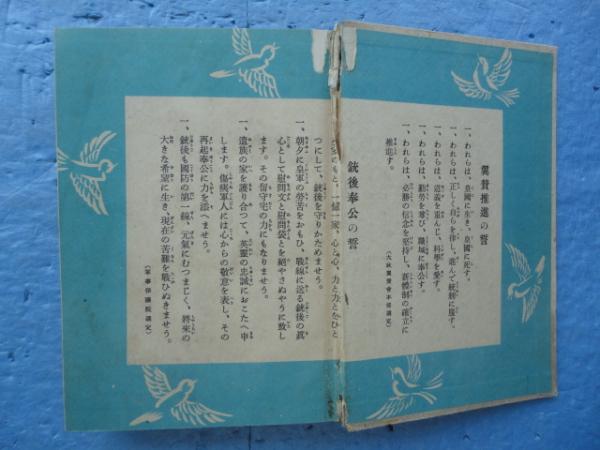 翼賛推進の誓
一、われらは、皇國に生き、皇國に死す。
一、われらは、正しく身を律し、進んで統制に服す。
一、われらは、道義を重んじ、科學を愛す。
一、われらは、勤勞を尊び、職域に奉公す。
一、われらは、必勝の信念を堅持し、新體制の確立に
推進す。
(大政翼賛會本部選定)
銃後奉公の誓
のもと、一億一家、心と心、力と力とをひと
つにして、銃後を守りかためませう。
一、朝夕に皇軍の勞苦をおもひ、戰線に送る銃後の眞
心として慰問文と慰問袋とを絶やさぬやうに致し
ます。その留守宅の力にもなりませう。
一、遺族の家を護り合つて、英靈の忠誠におこたへ申
します。傷痍軍人には心からの敬意を表し、その
再起奉公に力を添へませう。
一、銃後も國防の第一線、元氣にむつまじく、將來の
大きな希望に生き、現在の苦難を戰ひぬきませう。
(軍事保護院選定)